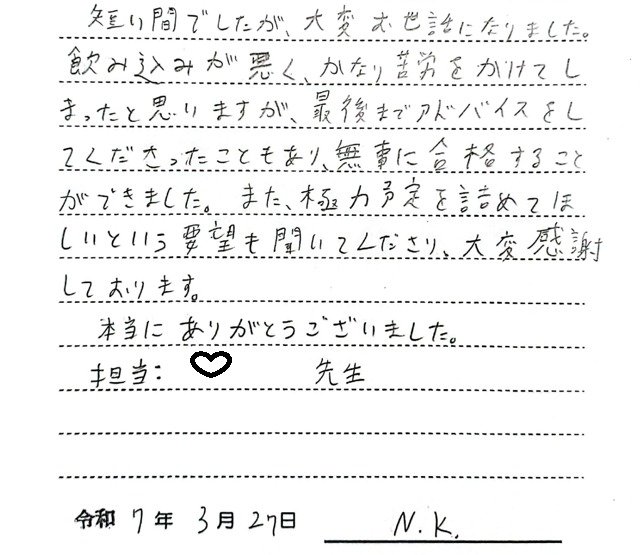 短い間でしたが、大変お世話になりました。
飲み込みが悪く、かなり苦労をかけてし
まったと思いますが、最後までアドバイスをし
てくださったこともあり、無事に合格すること
ができました。また、極力予定を詰めてほ
しいという要望も聞いてくださり、大変感謝
しております。
本当にありがとうございました。
担当: 先生
令和 7年 3月 27日 N.K.